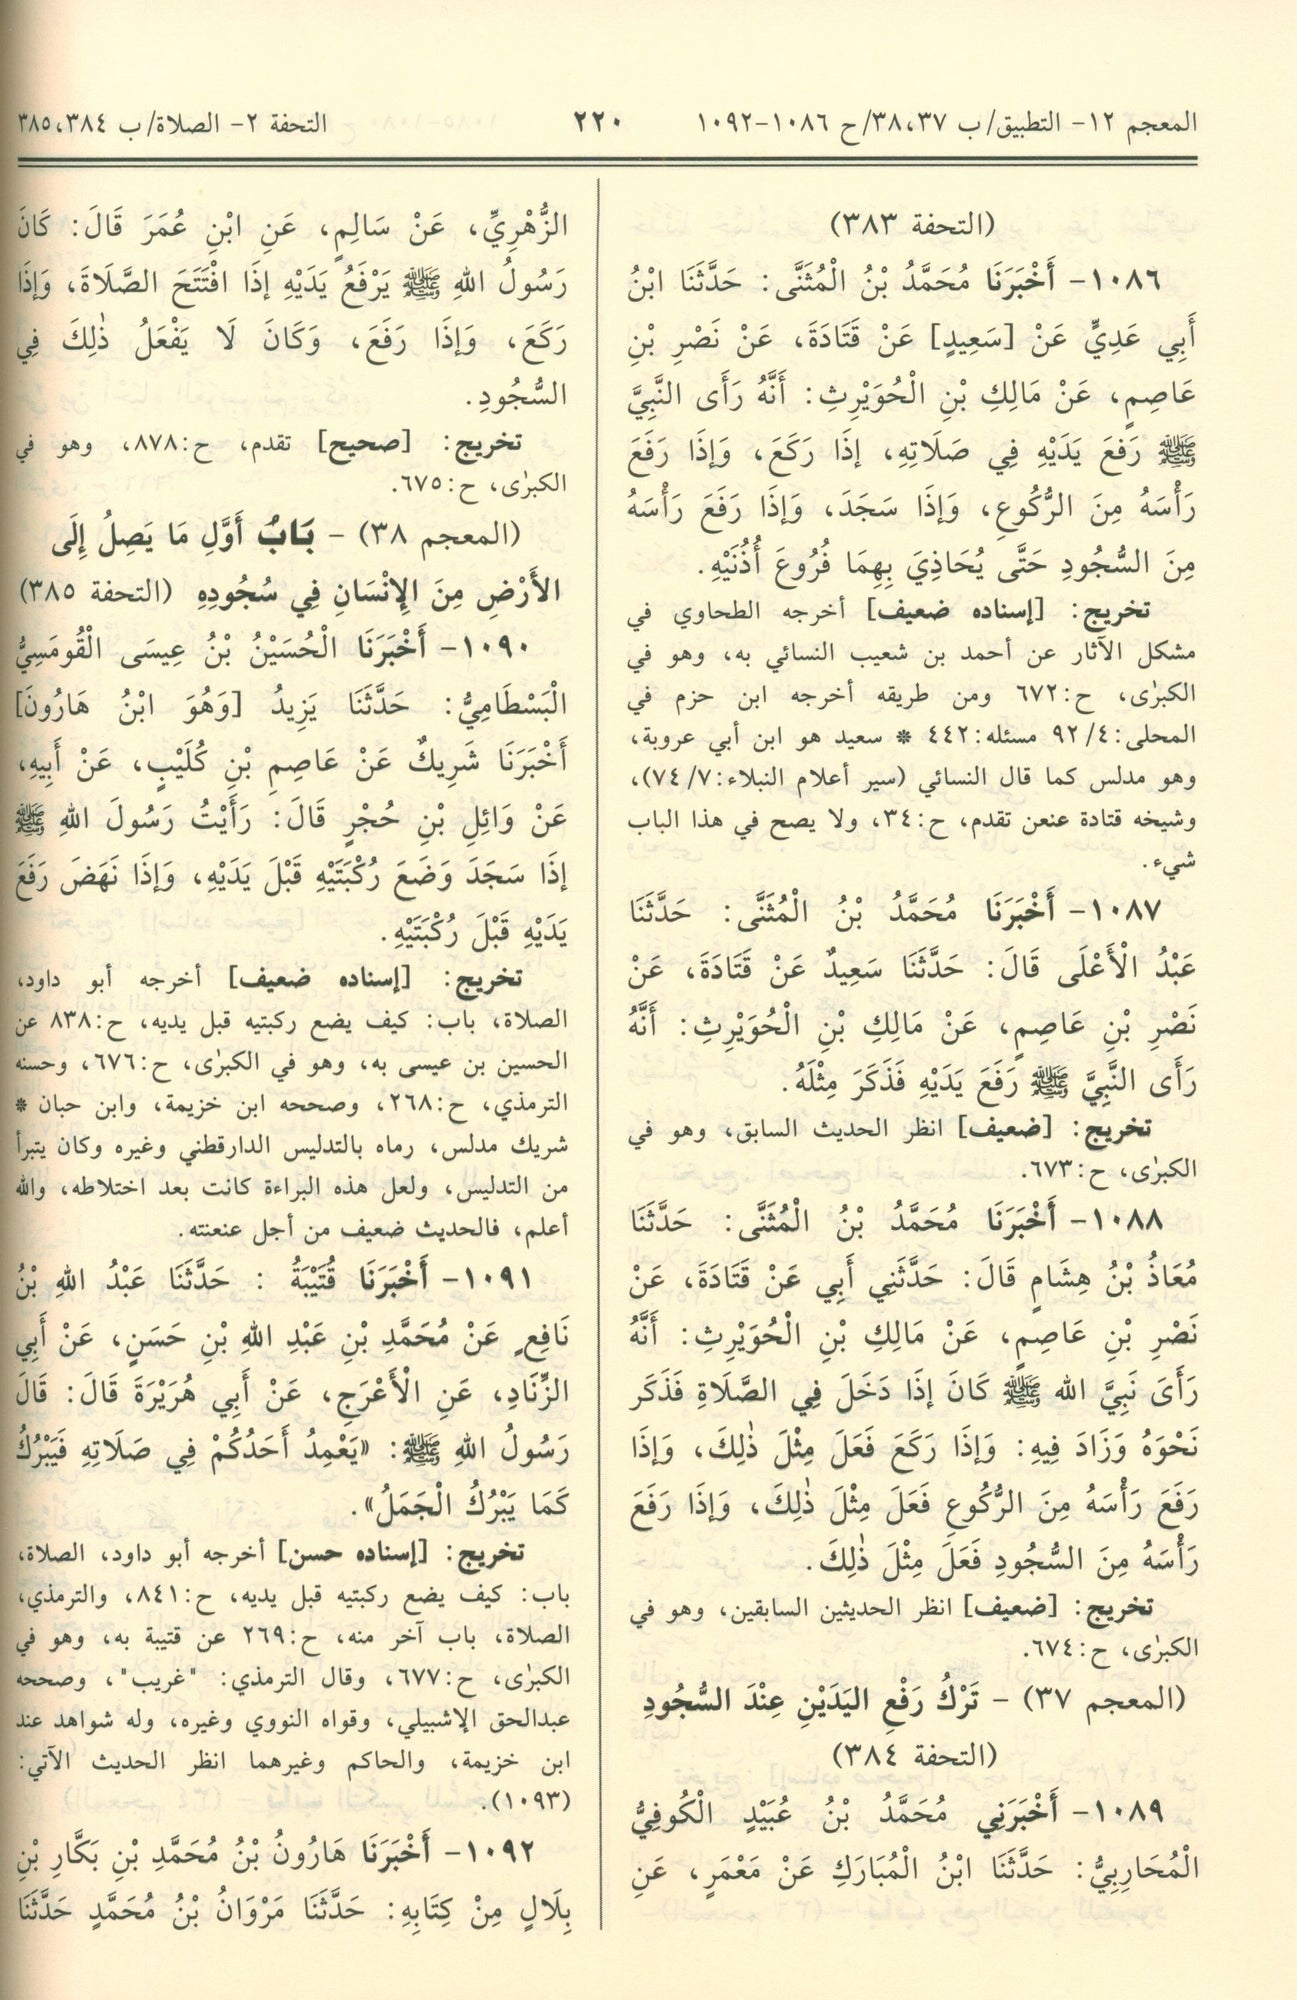 المعجم ١٢- التطبيق/ ب ٣٨،٣٧/ ح ١٠٨٦-١٠٩٢
٢٢٠
التحفة ٢- الصلاة/ ب ٣٨٥،٣٨٤
(التحفة ٣٨٣)
١٠٨٦- أَخْبَرَنَا مُحَمَّدُ بْنُ الْمُثَنَّى: حَدَّثَنَا ابْنُ
أَبِي عَدِيٍّ عَنْ [سَعِيدٍ] عَنْ قَتَادَةَ، عَنْ نَصْرِ بْنِ
عَاصِمٍ، عَنْ مَالِكِ بْنِ الْحُوَيْرِثِ: أَنَّهُ رَأَى النَّبِيَّ
ﷺ رَفَعَ يَدَيْهِ فِي صَلَاتِهِ، إِذَا رَكَعَ، وَإِذَا رَفَعَ
رَأْسَهُ مِنَ الرُّكُوعِ، وَإِذَا سَجَدَ، وَإِذَا رَفَعَ رَأْسَهُ
مِنَ السُّجُودِ حَتَّى يُحَاذِيَ بِهِمَا فُرُوعَ أُذُنَيْهِ.
تخريج: [إسناده ضعيف] أخرجه الطحاوي في
مشكل الآثار عن أحمد بن شعيب النسائي به، وهو في
الكبرٰى، ح:٦٧٢ ومن طريقه أخرجه ابن حزم في
المحلى:٤/ ٩٢ مسئله:٤٤٢ * سعيد هو ابن أبي عروبة،
وهو مدلس كما قال النسائي (سير أعلام النبلاء:٧/ ٧٤)،
وشيخه قتادة عنعن تقدم، ح:٣٤، ولا يصح في هذا الباب
شيء.
١٠٨٧- أَخْبَرَنَا مُحَمَّدُ بْنُ الْمُثَنَّى: حَدَّثَنَا
عَبْدُ الْأَعْلَى قَالَ: حَدَّثَنَا سَعِيدٌ عَنْ قَتَادَةَ، عَنْ
نَصْرِ بْنِ عَاصِمٍ، عَنْ مَالِكِ بْنِ الْحُوَيْرِثِ: أَنَّهُ
رَأَى النَّبِيَّ ﷺ رَفَعَ يَدَيْهِ فَذَكَرَ مِثْلَهُ.
تخريج: [ضعيف] انظر الحديث السابق، وهو في
الكبرٰى، ح:٦٧٣.
١٠٨٨- أَخْبَرَنَا مُحَمَّدُ بْنُ الْمُثَنَّى: حَدَّثَنَا
مُعَاذُ بْنُ هِشَامٍ قَالَ: حَدَّثَنِي أَبِي عَنْ قَتَادَةَ، عَنْ
نَصْرِ بْنِ عَاصِمٍ، عَنْ مَالِكِ بْنِ الْحُوَيْرِثِ: أَنَّهُ
رَأَىَ نَبِيَّ الله ﷺ كَانَ إِذَا دَخَلَ فِي الصَّلَاةِ فَذَكَر
نَحْوَهُ وَزَادَ فِيهِ: وَإِذَا رَكَعَ فَعَلَ مِثْلَ ذٰلِكَ، وَإِذَا
رَفَعَ رَأْسَهُ مِنَ الرُّكُوعِ فَعَلَ مِثْلَ ذٰلِكَ، وَإِذَا رَفَعَ
رَأْسَهُ مِنَ السُّجُودِ فَعَلَ مِثْلَ ذٰلِكَ.
تخريج: [ضعيف] انظر الحديثين السابقين، وهو في
الكبرٰى، ح:٦٧٤.
(المعجم ٣٧) - تَرْكُ رَفْعِ اليَدَيْنِ عِنْدَ السُّجُودِ
(التحفة ٣٨٤)
١٠٨٩- أَخْبَرَنِي مُحَمَّدُ بْنُ عُبَيْدٍ الْكُوفِيُّ
الْمُحَارِبِيُّ: حَدَّثَنَا ابْنُ الْمُبَارَكِ عَنْ مَعْمَرٍ، عَنِ
الزُّهْرِيِّ، عَنْ سَالِمٍ، عَنِ ابْنِ عُمَرَ قَالَ: كَانَ
رَسُولُ اللهِ ﷺ يَرْفَعُ يَدَيْهِ إِذَا افْتَتَحَ الصَّلَاةَ، وَإِذَا
رَكَعَ، وَإِذَا رَفَعَ، وَكَانَ لَا يَفْعَلُ ذٰلِكَ فِي
السُّجُودِ.
تخريج: [صحيح] تقدم، ح:٨٧٨، وهو في
الكبرٰى، ح:٦٧٥.
(المعجم ٣٨) - بَابُ أَوَّلِ مَا يَصِلُ إِلَى
الأَرْضِ مِنَ الإِنْسَانِ فِي سُجُودِهِ (التحفة ٣٨٥)
١٠٩٠- أَخْبَرَنَا الْحُسَيْنُ بْنُ عِيسَى الْقُومَسِيُّ
الْبَسْطَامِيُّ: حَدَّثَنَا يَزِيدُ [وَهُوَ ابْنُ هَارُونَ]
أَخْبَرَنَا شَرِيكٌ عَنْ عَاصِمِ بْنِ كُلَيْبٍ، عَنْ أَبِيهِ،
عَنْ وَائِلِ بْنِ حُجْرٍ قَالَ: رَأَيْتُ رَسُولَ اللهِ ﷺ
إِذَا سَجَدَ وَضَعَ رُكْبَتَيْهِ قَبْلَ يَدَيْهِ، وَإِذَا نَهَضَ رَفَعَ
يَدَيْهِ قَبْلَ رُكْبَتَيْهِ.
تخريج: [إسناده ضعيف] أخرجه أبو داود،
الصلاة، باب: كيف يضع ركبتيه قبل يديه، ح:٨٣٨ عن
الحسين بن عيسى به، وهو في الكبرٰى، ح:٦٧٦، وحسنه
الترمذي، ح:٢٦٨، وصححه ابن خزيمة، وابن حبان *
شريك مدلس، رماه بالتدليس الدارقطني وغيره وكان يتبرأ
من التدليس، ولعل هذه البراءة كانت بعد اختلاطه، والله
أعلم، فالحديث ضعيف من أجل عنعنته.
١٠٩١- أَخْبَرَنَا قُتَيْبَةُ : حَدَّثَنَا عَبْدُ اللهِ بْنُ
نَافِعٍ عَنْ مُحَمَّدِ بْنِ عَبْدِ اللهِ بْنِ حَسَنٍ، عَنْ أَبِي
الزِّنَادِ، عَنِ الْأَعْرَجِ، عَنْ أَبِي هُرَيْرَةَ قَالَ: قَالَ
رَسُولُ اللهِ ﷺ: «يَعْمِدُ أَحَدُكُمْ فِي صَلَاتِهِ فَيَبْرُكُ
كَمَا يَبْرُكُ الْجَمَلُ».
تخريج: [إسناده حسن] أخرجه أبو داود، الصلاة،
باب: كيف يضع ركبتيه قبل يديه، ح:٨٤١، والترمذي،
الصلاة، باب آخر منه، ح:٢٦٩ عن قتيبة به، وهو في
الكبرٰى، ح:٦٧٧، وقال الترمذي: "غريب"، وصححه
عبدالحق الإشبيلي، وقواه النووي وغيره، وله شواهد عند
ابن خزيمة، والحاكم وغيرهما انظر الحديث الآتي:
(١٠٩٣).
١٠٩٢- أَخْبَرَنَا هَارُونُ بْنُ مُحَمَّدِ بْنِ بَكَّارِ بْنِ
بِلَالٍ مِنْ كِتَابِهِ: حَدَّثَنَا مَرْوَانُ بْنُ مُحَمَّدٍ حَدَّثَنَا